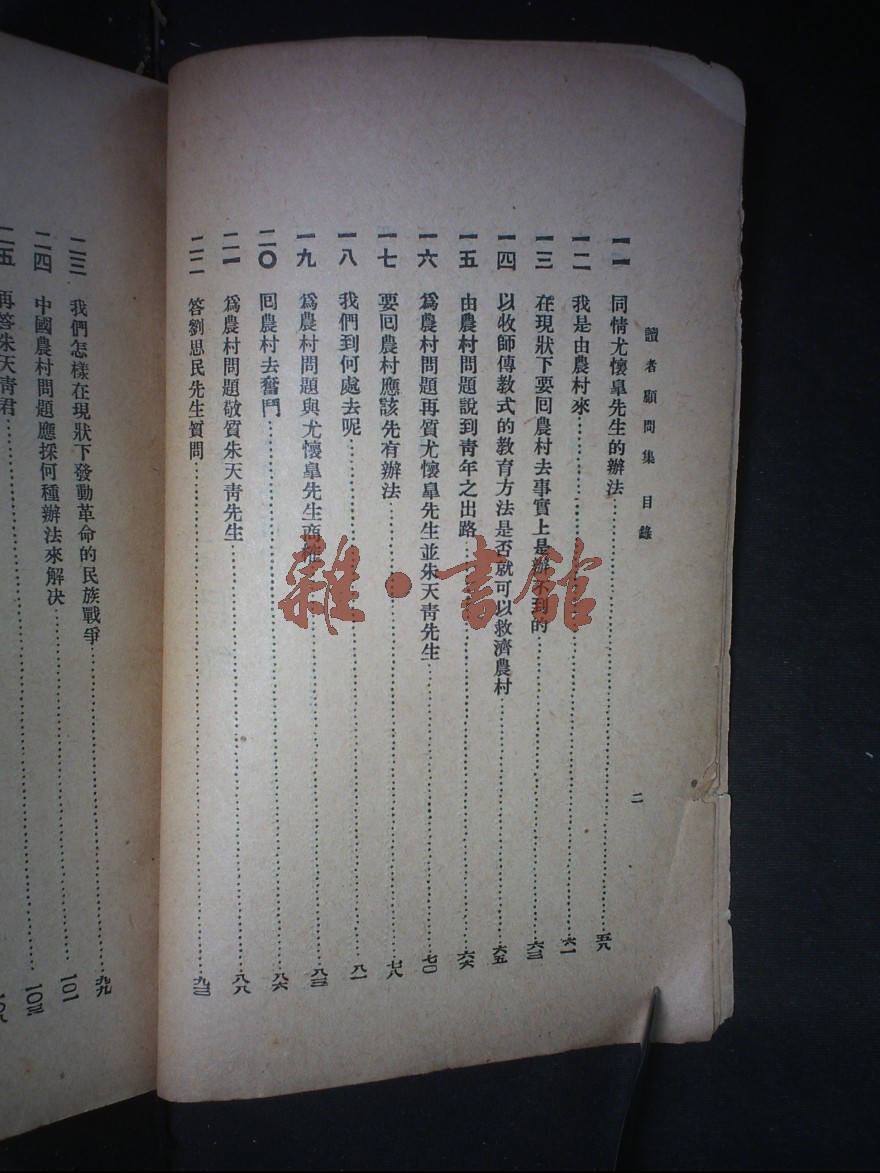 讀者顧問集 目錄
二
一一 同情尤懷皐先生的辦法……五八
一二 我是由農村來……六一
一三 在現狀下要囘農村去事實上是辦不到的……六三
一四 以牧師傳教式的教育方法是否就可以救濟農村……六五
一五 由農村問題說到青年之出路……六六
一六 爲農村問題再質尤懷皐先生並朱天青先生……七〇
一七 要囘農村應該先有辦法……七八
一八 我們到何處去呢……八一
一九 爲農村問題與尤懷皐先生商……八三
二〇 囘農村去奮鬥……八六
二一 爲農村問題敬質朱天青先生……八八
二二 答劉思民先生質問……九三
二三 我們怎樣在現狀下發動革命的民族戰爭……九九
二四 中國農村問題應採何種辦法來解決……一〇一
二五 再答朱天青君……
雜·書館